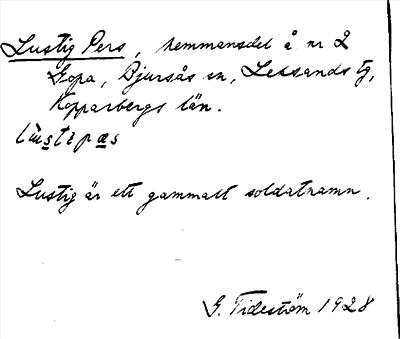 Lustig Pers, hemmansdel å nr 2
Gopa, Djursås sn, Leksands tg,
Kopparbergs län.
lùstipæs
Lustig är ett gammalt soldatnamn.
G. Tideström 1928